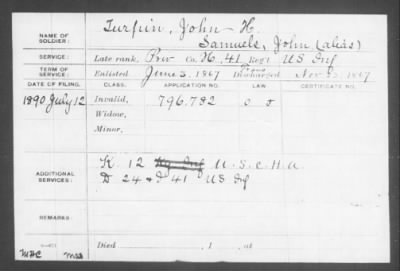 NAME OF SOLDIER: Turpin, John H.
Samuels, John (alias)
SERVICE: Late rank, Priv Co. H, 41 Reg't US Inf
TERM OF SERVICE: Enlisted June 3, 1867 Discharged Nov 30, 1867
DATE OF FILING. CLASS. APPLICATION NO. LAW. CERTIFICATE NO.
1890 July 12 Invalid, 796.782
Widow,
Minor,
ADDITIONAL SERVICES: K 12 U.S.C.H.A.
D 24 & 41 US Inf
REMARKS:
Died , 1 , at